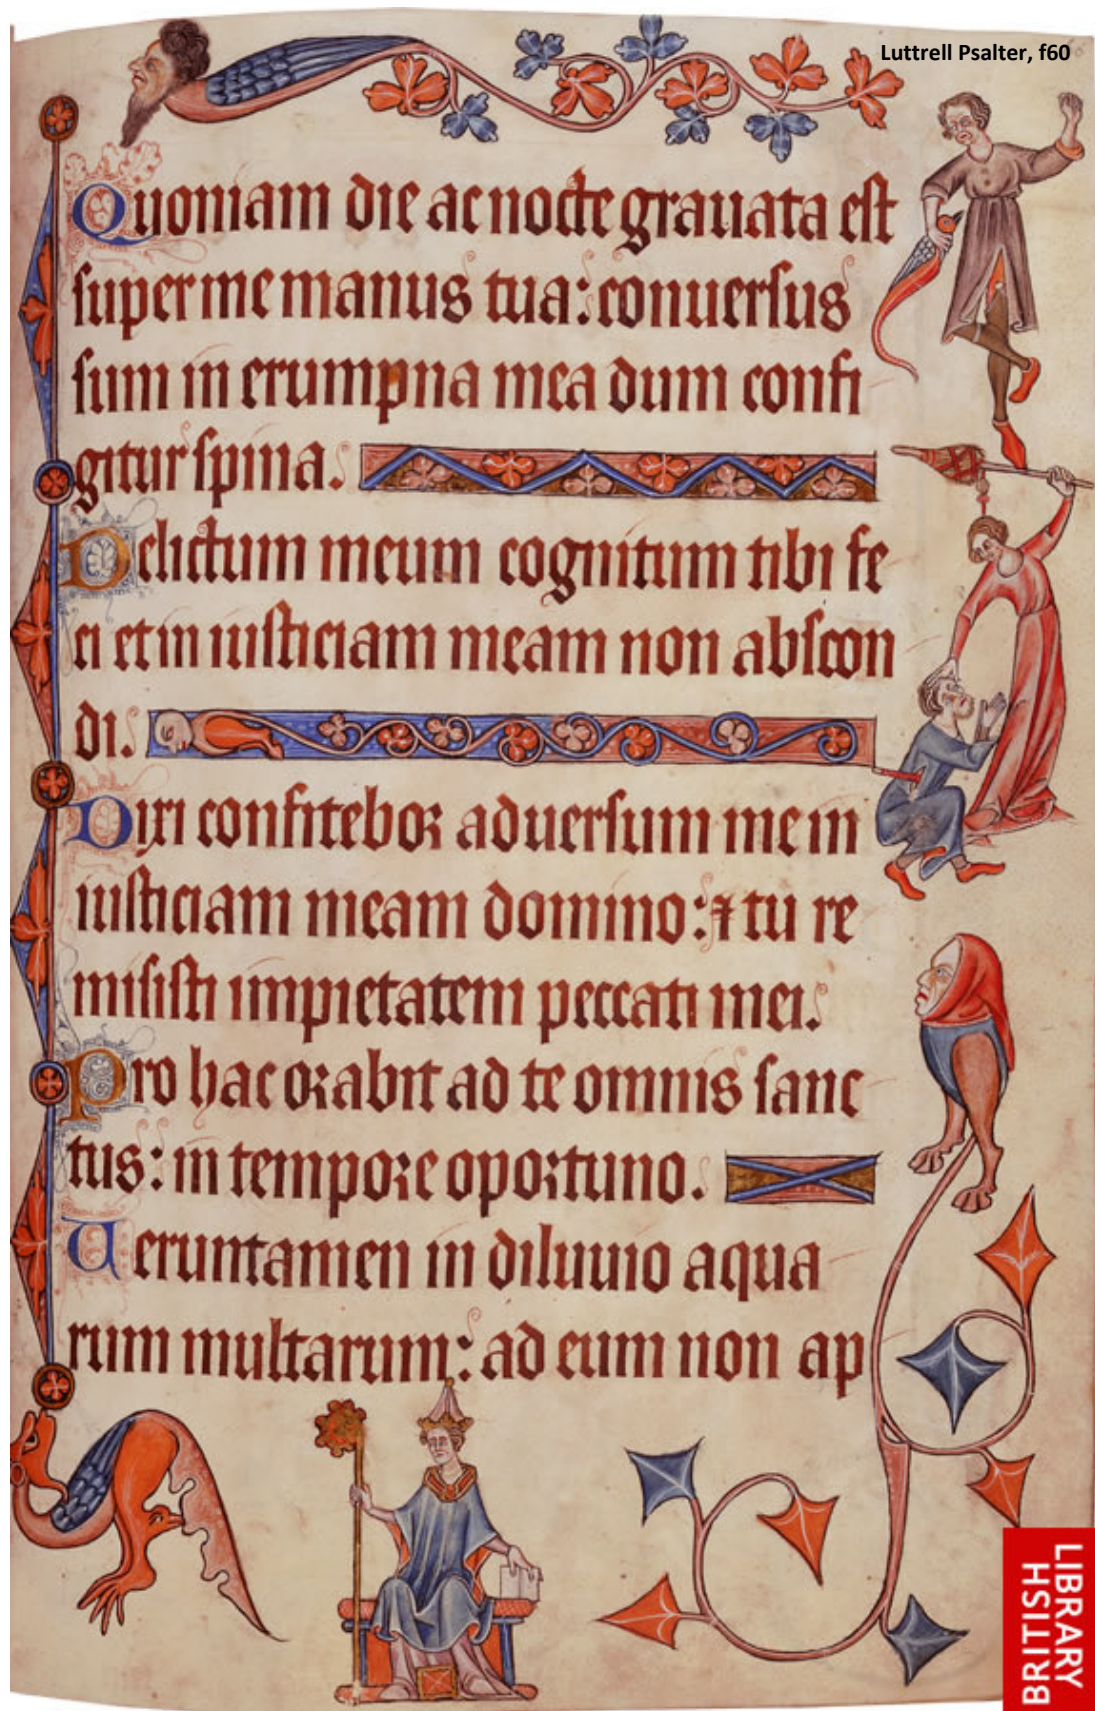 Luttrell Psalter, f60
Quoniam die ac nocte grauata est
super me manus tua: conuersus
sum in erumpna mea dum confi
gitur spina.
Delictum meum cognitum tibi fe
ci et in iusticiam meam non abscon
di.
Dixi confitebor aduersum me in
iusticiam meam domino: ⁊ tu re
misisti impietatem peccati mei.
Pro hac orabit ad te omnis sanc
tus: in tempore oportuno.
Ueruntamen in diluuio aqua
rum multarum: ad eum non ap
LIBRARY
BRITISH